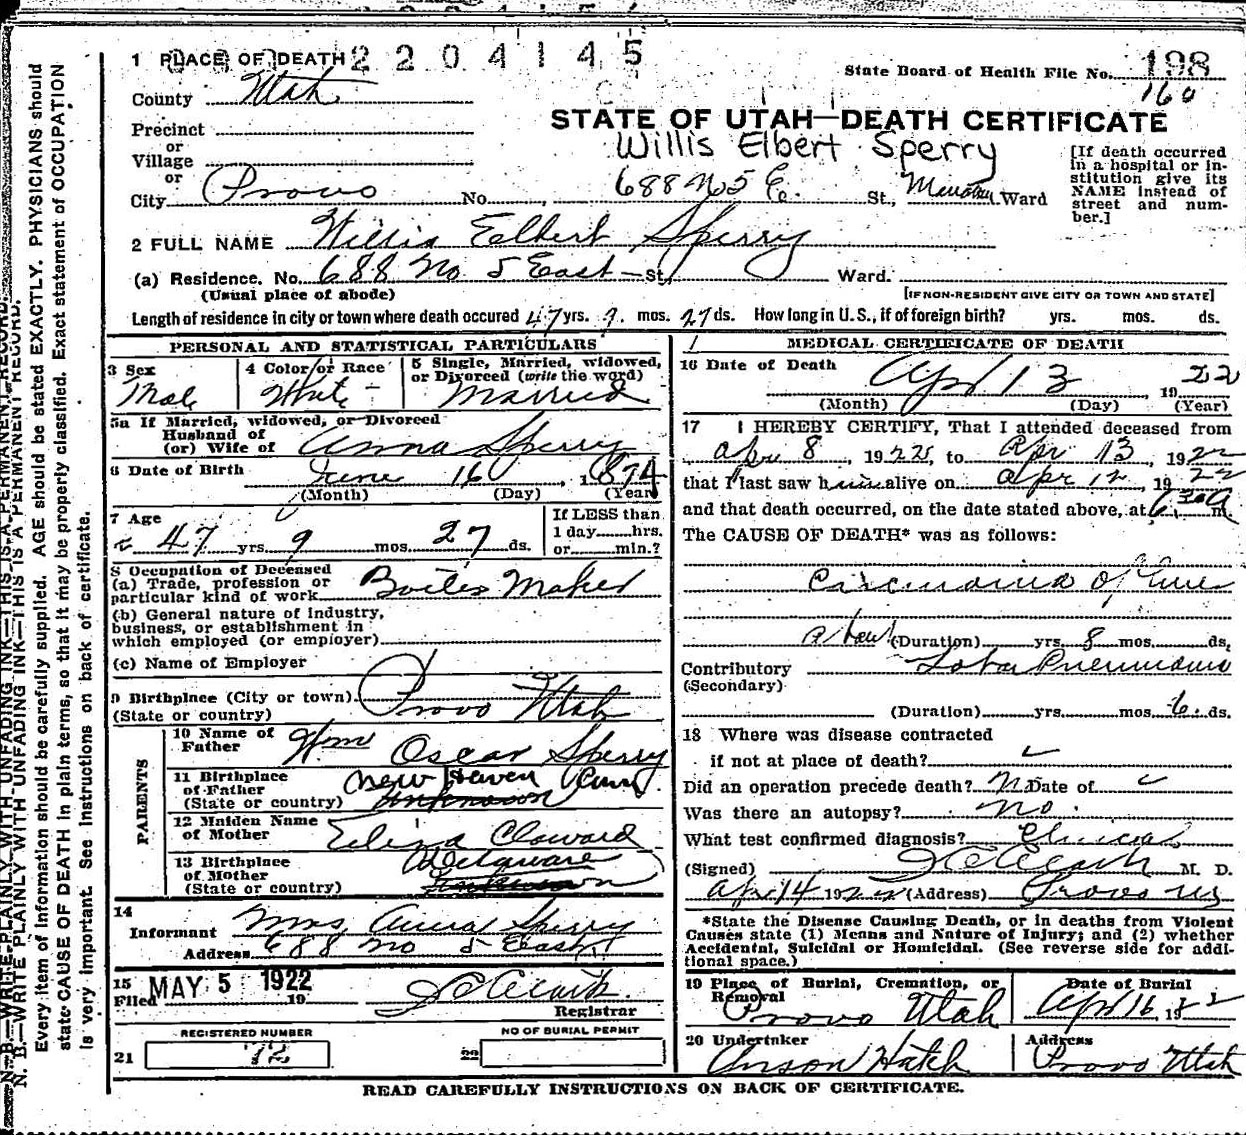 1 PLACE OF DEATH 2204145
State Board of Health File No. 198
160
County Utah
STATE OF UTAH—DEATH CERTIFICATE
Precinct
or
Village
or
Willis Elbert Sperry
[If death occurred in a hospital or institution give its NAME instead of street and number.]
City Provo No. 688 No 5 E. St., Ward
2 FULL NAME Willis Elbert Sperry
(a) Residence. No. 688 No 5 East St, Ward.
(Usual place of abode)
[IF NON-RESIDENT GIVE CITY OR TOWN AND STATE]
Length of residence in city or town where death occured 47 yrs. 9. mos. 27 ds. How long in U.S., if of foreign birth? yrs. mos. ds.
PERSONAL AND STATISTICAL PARTICULARS
3 Sex
Male
4 Color or Race
White
5 Single, Married, widowed,
or Divorced (write the word)
Married
5a If Married, widowed, or Divorced
Husband of
(or) Wife of Anna Sperry
6 Date of Birth June 16, 1874
(Month) (Day) (Year)
7 Age
47 yrs 9 mos. 27 ds.
If LESS than
1 day hrs.
or min.?
8 Occupation of Deceased
(a) Trade, profession or
particular kind of work Boiler Maker
(b) General nature of industry,
business, or establishment in
which employed (or employer)
(c) Name of Employer
9 Birthplace (City or town)
(State or country) Provo Utah
PARENTS
10 Name of
Father Wm Oscar Sperry
11 Birthplace
of Father
(State or country) New Haven Conn
Unknown
12 Maiden Name
of Mother Cloward
13 Birthplace
of Mother
(State or country) Delaware
Unknown
14
Informant Mrs Anna Sperry
Address 688 No 5 East
15
Filed MAY 5 1922 19
Registrar
REGISTERED NUMBER
21 72
NO OF BURIAL PERMIT
22
MEDICAL CERTIFICATE OF DEATH
16 Date of Death Apr 13, 1922
(Month) (Day) (Year)
17 I HEREBY CERTIFY, That I attended deceased from
Apr 8, 1922, to Apr 13, 1922
that I last saw him alive on Apr 12, 1922
and that death occurred, on the date stated above, at 6 30 a m.
The CAUSE OF DEATH* was as follows:
Carcinoma of Liver
about (Duration) yrs. 8 mos. ds.
Contributory Lobar Pneumonia
(Secondary)
(Duration) yrs. mos. 6 ds.
18 Where was disease contracted
if not at place of death?
Did an operation precede death? No Date of
Was there an autopsy? no.
What test confirmed diagnosis? Clinical
(Signed) M. D.
Apr 14 1922 (Address) Provo
*State the Disease Causing Death, or in deaths from Violent
Causes state (1) Means and Nature of Injury; and (2) whether
Accidental, Suicidal or Homicidal. (See reverse side for addi-
tional space.)
19 Place of Burial, Cremation, or
Removal
Provo Utah
Date of Burial
Apr 16, 1922
20 Undertaker
Anson Hatch
Address
Provo Utah
READ CAREFULLY INSTRUCTIONS ON BACK OF CERTIFICATE.
N. B.—WRITE PLAINLY WITH UNFADING INK—THIS IS A PERMANENT RECORD.
Every item of information should be carefully supplied. AGE should be stated EXACTLY. PHYSICIANS should
state CAUSE OF DEATH in plain terms, so that it may be properly classified. Exact statement of OCCUPATION
is very important. See instructions on back of certificate.